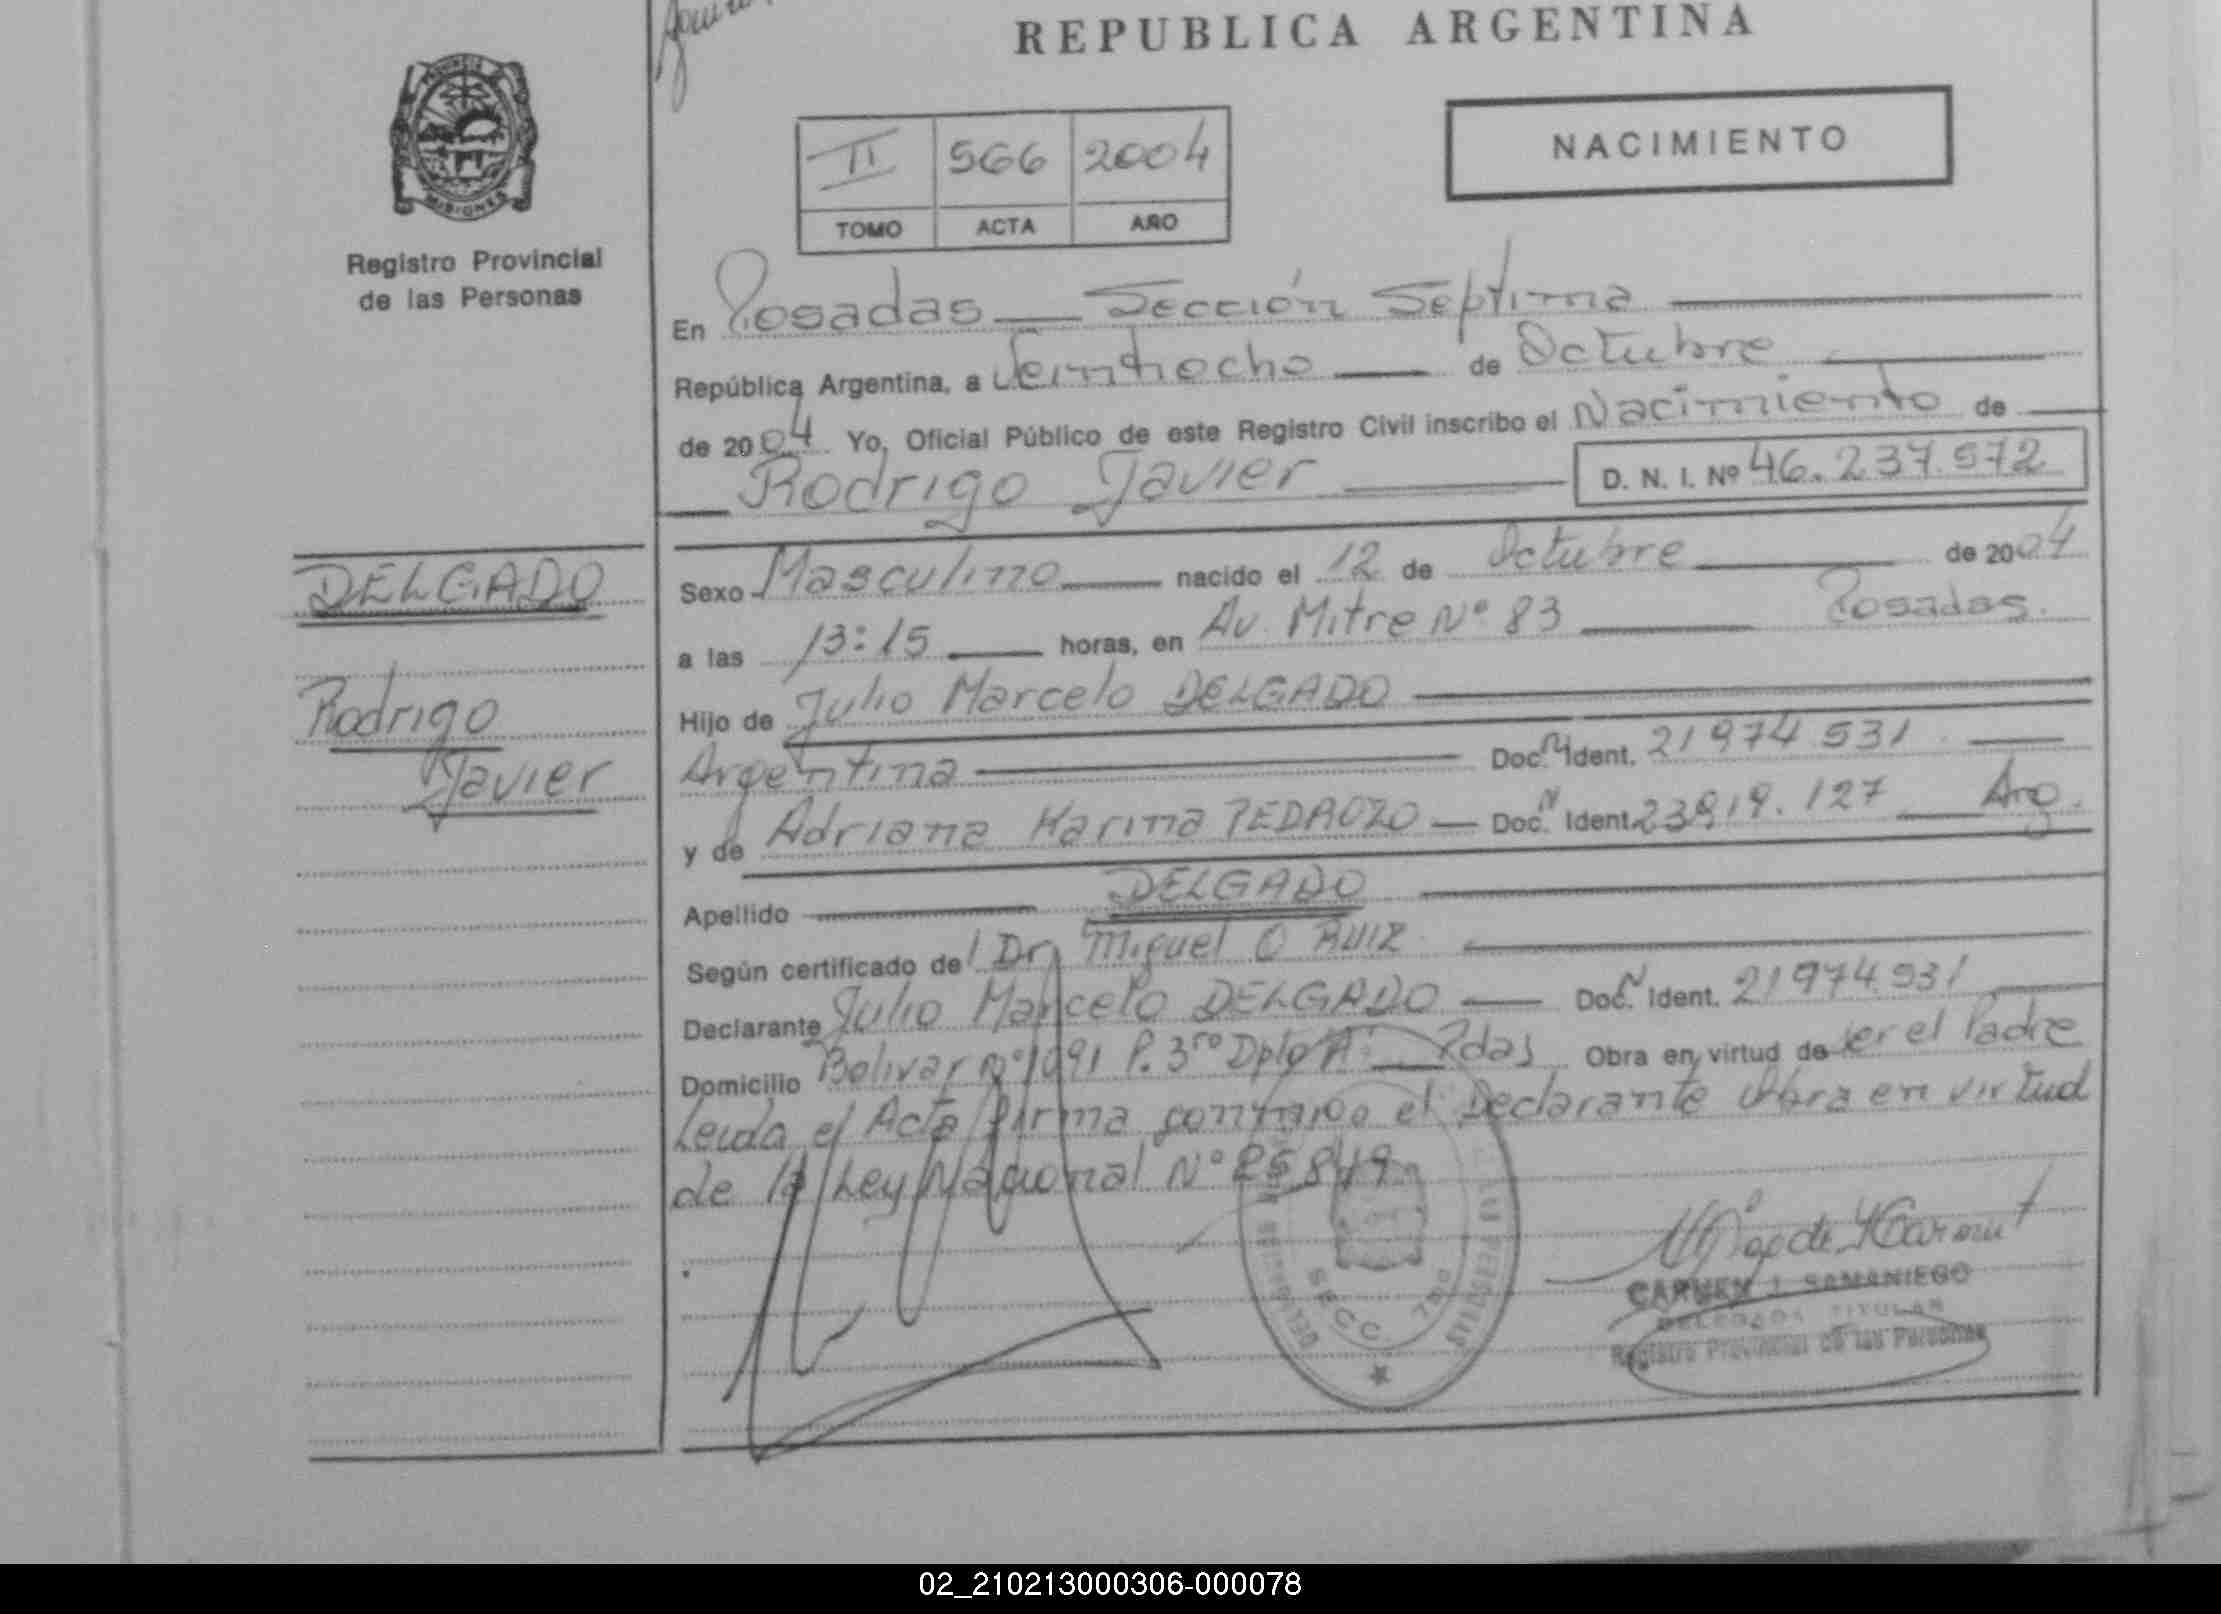 REPUBLICA ARGENTINA
PROVINCIA DE
MISIONES
Registro Provincial
de las Personas
NACIMIENTO
II 566 2004
TOMO ACTA AÑO
En Posadas — Sección Septima
República Argentina, a Veintiocho de Octubre
de 2004 Yo, Oficial Público de este Registro Civil inscribo el Nacimiento de
Rodrigo Javier D. N. I. Nº 46.237.572
DELGADO
Rodrigo
Javier
Sexo Masculino nacido el 12 de Octubre de 2004
a las 13:15 horas, en Av. Mitre Nº 83 Posadas.
Hijo de Julio Marcelo DELGADO
Argentina Doc. N Ident. 21974531
y de Adriana Karina PEDROZO Doc. N Ident. 23819.127 Arg.
Apellido DELGADO
Según certificado del Dr. Miguel O RUIZ
Declarante Julio Marcelo DELGADO Doc. N Ident. 21974.531
Domicilio Bolivar nº 1091 P. 3ro Dpto A. Pdas Obra en virtud de ser el Padre
Leida el Acta firma conmigo el Declarante Obra en virtud
de la Ley Nacional Nº 25819
SECC. 7ma
CARMEN I. SAMANIEGO
DELEGADA TITULAR
Registro Provincial de las Personas
02_210213000306-000078